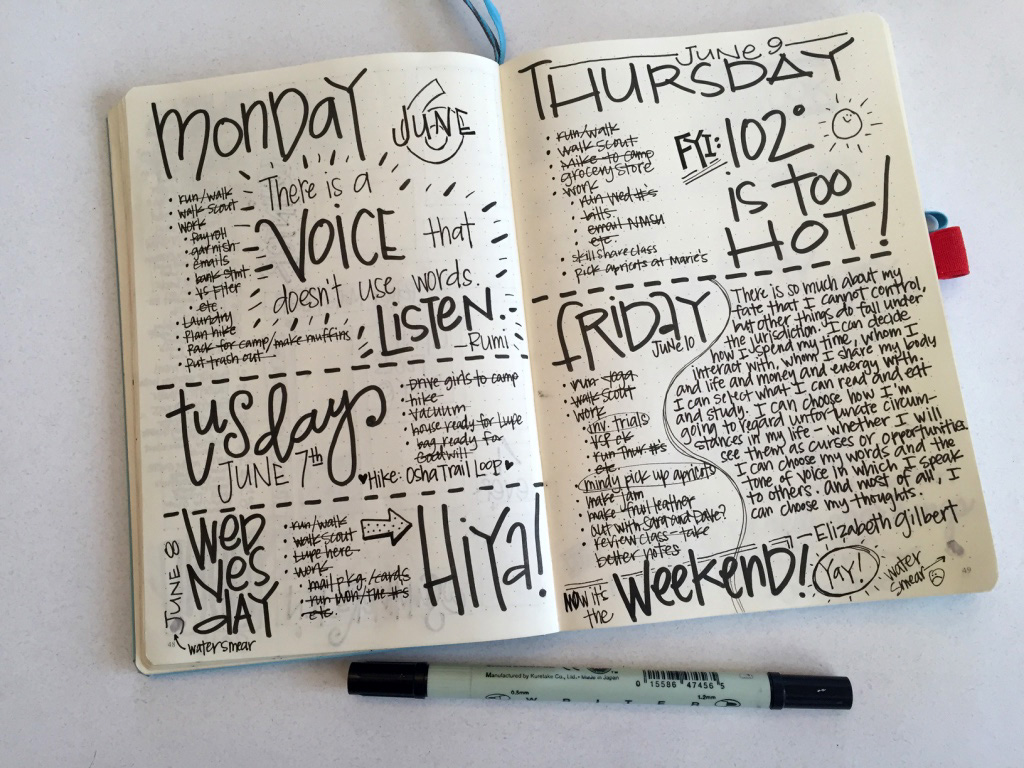 MONDAY
6 JUNE
• run/walk
• walk scout
• work
• payroll
• garnish
• emails
• bank stmt
• VS Filer
• etc.
• Laundry
• Plan hike
• Pack for camp/make muffins
• Put trash out
There is a
VOICE that
doesn't use words.
LISTEN.
-Rumi
tusday
JUNE 7th
• Drive girls to camp
• hike
• vacuum
• house ready for Lupe
• bag ready for
Goodwill
♥Hike: Osha Trail Loop♥
JUNE 8
WED
NES
DAY
48
watersmear
• run/walk
• walk scout
• Lupe here
• work
• mail pkg./cards
• run Mon/Tue #'s
• etc.
HiYa!
JUNE 9
THURSDAY
• run/walk
• walk scout
• Mike to camp
• grocery store
• work
• run Wed #'s
• bills
• email
• etc.
• skillshare class
• Pick apricots at Marie's
FYI: 102°
is too
HOT!
FRIDAY
JUNE 10
• run yoga
• walk scout
• work
• inv. trials
• run Thur #'s
• etc.
• mindy pick up apricots
• make jam
• make fruit leather
• out with Sara and Dave?
• review class - take
better notes
There is so much about my
fate that I cannot control,
but other things do fall under
the jurisdiction. I can decide
how I spend my time, whom I
interact with, whom I share my body
and life and money and energy with.
I can select what I can read and eat
and study. I can choose how I'm
going to regard unfortunate circum-
stances in my life - whether I will
see them as curses or opportunities.
I can choose my words and the
tone of voice in which I speak
to others. and most of all, I
can choose my thoughts.
-Elizabeth Gilbert
NOW it's
the
WEEKEND!
YAY!
water
smear
49
Manufactured by Kuretake Co., Ltd. • Made in Japan
0 15586 47456 5
0.5mm
1.2mm
WRITER